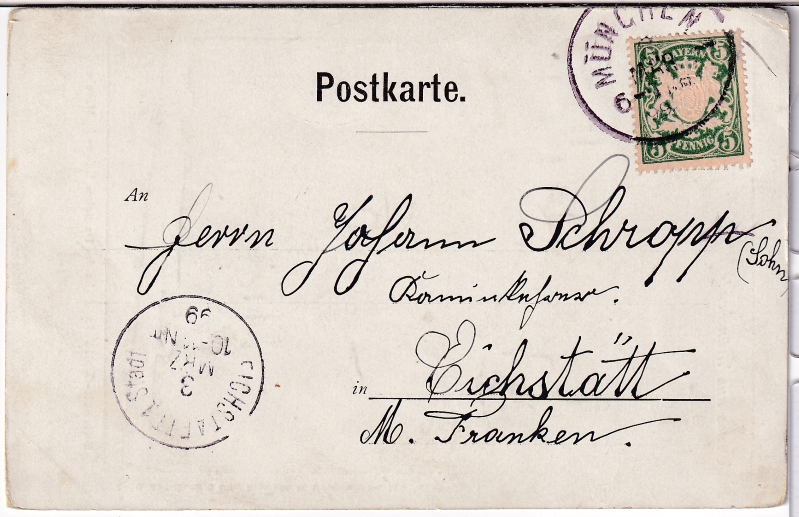 MÜNCHEN
6-7
5 BAYERN 5
5 PFENNIG 5
Postkarte.
An
Herrn Johann Schropp
(Sohn)
Kaminkehrer.
in Eichstätt
M. Franken.
EICHSTAETT 1 Stadt
3
MRZ
99